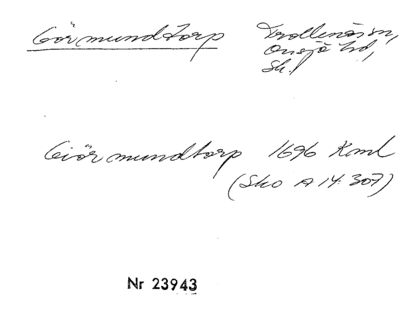 Görmundtorp Trollenäs sn,
Onsjö hd,
Sk.
Giörmundtorp 1696 Kml
(Sko A 14: 307)
Nr 23943